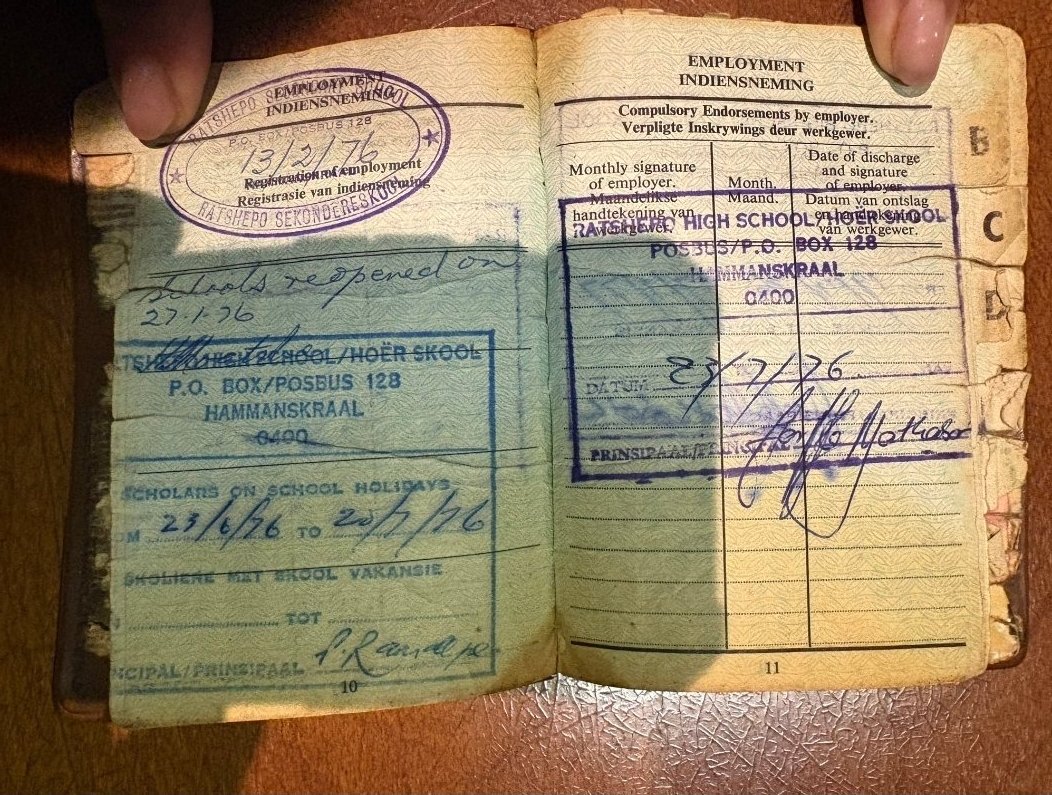 EMPLOYMENT
INDIENSNEMING
RATSHEPO SECONDARY SCHOOL
P.O. BOX/POSBUS 128
13/2/76
RATSHEPO SEKONDÊRESKOOL
Registration of employment
Registrasie van indiensneming
Schools reopened on
27.1.76
HIGH SCHOOL/HOËR SKOOL
P.O. BOX/POSBUS 128
HAMMANSKRAAL
0400
SCHOLARS ON SCHOOL HOLIDAYS
M 23/6/76 TO 20/7/76
SKOLIERE MET SKOOL VAKANSIE
TOT
CIPAL/PRINSIPAAL
10
EMPLOYMENT
INDIENSNEMING
Compulsory Endorsements by employer.
Verpligte Inskrywings deur werkgewer.
Monthly signature
of employer.
Maandelikse
handtekening van
werkgewer.
Month.
Maand.
Date of discharge
and signature
of employer.
Datum van ontslag
en handtekening
van werkgewer.
RATSHEPO HIGH SCHOOL/HOËR SKOOL
POSBUS/P.O. BOX 128
HAMMANSKRAAL
0400
DATUM 23/7/76
PRINSIPAAL/PRINCIPAL
11
B
C
D